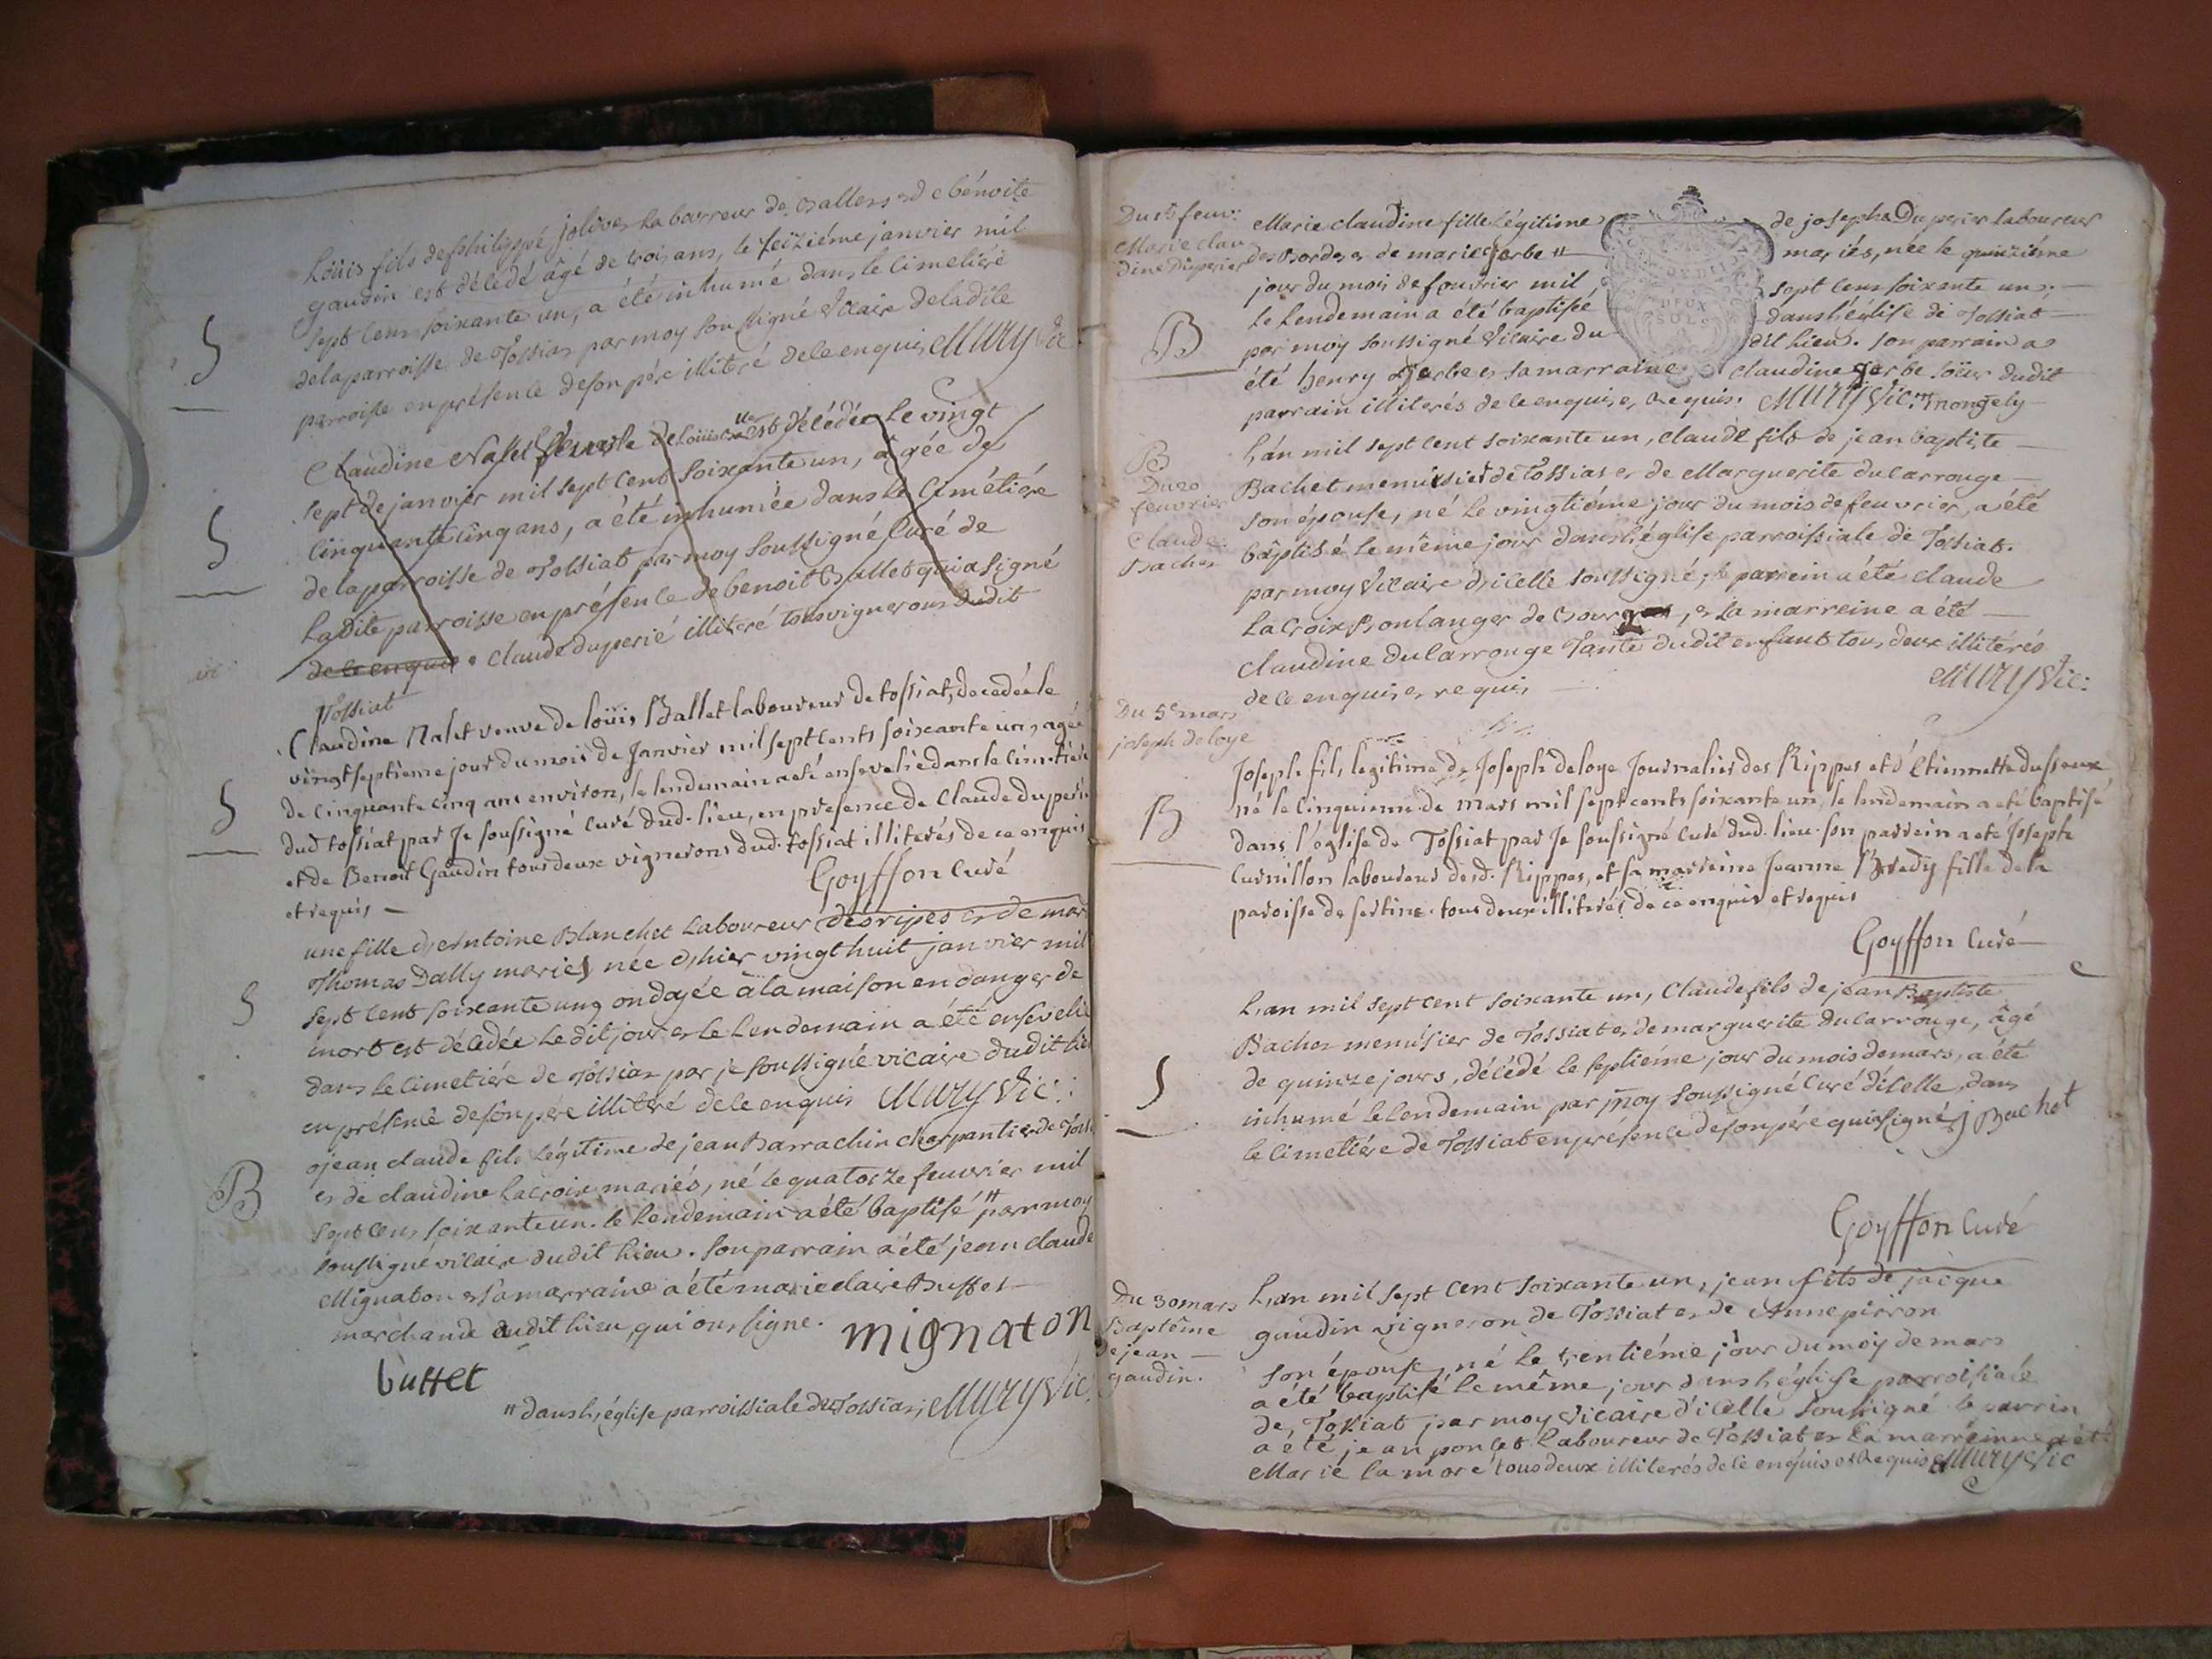 Loüis fils de philippe jolivet laboureur de Ballens et de bénoite
gaudin est décédé âgé de trois ans, le seiziéme janvier mil
sept cent soixante un, a été inhumé dans le cimetiére
de la parroisse de Tossiat par moy soussigné Vicaire de ladite
parroisse en présence de son pére illitéré de ce enquis MURY Vic
S
Claudine Nallet veuve de Loüis Ballet est décédée le vingt
sept de janvier mil sept cent soixante un, âgée de
cinquante cinq ans, a été inhumée dans le cimétiére
de la parroisse de Tossiat par moy soussigné Curé de
ladite parroisse en présence de benoit Ballet qui a signé
de ce enquis Claude duperié illitéré tous vignerons dudit
Tossiat
S
Claudine Nalet veuve de loüis Ballet laboureur de tossiat, decedée le
vingt septieme jour du mois de Janvier mil sept cents soixante un, agée
de cinquante cinq ans environ, le lendemain a eté ensevelie dans le cimetiere
dud tossiat par Je soussigné curé dud. lieu, en presence de Claude duperié
et de Benoit Gaudin tous deux vignerons dud. tossiat illiterés de ce enquis
et requis
Goyffon Curé
S
une fille d'Antoine Blanchet laboureur des ripes et de mar
Thomas Dally mariés née d'hier vingt huit janvier mil
sept cent soixante un, ondoyée à la maison en danger de
mort est décédée ledit jour et le lendemain a été ensevelie
dans le cimetiére de Tossiat par je soussigné vicaire dudit lieu
en présence de son pére illitéré de ce enquis MURY Vic:
S
jean claude fils légitime de jean Barrachin charpantier de Toss
et de claudine lacroix mariés, né le quatorze feuvrier mil
sept cent soixante un. le lendemain a été baptisé " par moy
soussigné vicaire dudit lieu. son parrain a été jean claude
Mignaton et sa marraine a été marie claire Buffet
marchande dudit lieu, qui ont signé. mignaton
B
buffet
" dans l'église parroissiale de Tossiat, MURY Vic.
Du 15 feuv:
Marie clau
dine Duperier
B
Marie claudine fille légitime de joseph Duperier laboureur
des Bordes et de marie gerbe " mariés, née le quinziéme
jour du mois de feuvrier mil sept cent soixante un;
le lendemain a été baptisée dans l'église de Tossiat
par moy soussigné Vicaire du dit lieu. son parrain a
été henry gerbe et sa marraine claudine gerbe soeur dudit
parrain illiterés de ce enquis et requis. MURY Vic.
DEUX
SOLS
B
Du 20
feuvrier
Claude
Bachet
L'an mil sept cent soixante un, claude fils de jean baptiste
Bachet menuisier de Tossiat et de Marguerite ducarrouge
son épouse, né le vingtiéme jour du mois de feuvrier, a été
bâptisé le même jour dans l'église parroissiale de Tossiat.
par moy Vicaire d'icelle soussigné, le parrein a été claude
Lacroix Boulanger de Bourg, et la marreine a été
claudine ducarrouge Tante dudit enfant tous deux illitérés
de ce enquis et requis
MURY Vic:
Du 5e mars
joseph deloye
B
Joseph fils legitime de Joseph deloye Journalier des Rippes et d'Etiennette dufseux
né le cinquieme de mars mil sept cents soixante un, le lendemain a eté baptisé
dans l'église de Tossiat par Je soussigné curé dud. lieu. son parrein a eté Joseph
Curnillon laboureur desd. Rippes, et sa marreine Jeanne Bredy fille de la
paroisse de sertine. tous deux illiterés de ce enquis et requis
Goyffon Curé
L'an mil sept cent soixante un, Claude fils de jean Baptiste
Bachet menusier de Tossiat et de marguerite ducarrouge, âgé
de quinze jours, décédé le septiéme jour du mois de mars, a été
inhumé le lendemain par moy soussigné Curé d'icelle, dans
le cimetiére de Tossiat en présence de son pére qui a signé j Bachet
S
Goyffon Curé
Du 30 mars
Baptême
de jean
gaudin.
L'an mil sept cent soixante un, jean fils de jacque
gaudin vigneron de Tossiat et de Anne pirron
son épouse, né le trentiéme jour du moy de mars
a été baptisé le même jour dans l'église parroissiale
de Tossiat par moy Vicaire d'icelle soussigné le parrin
a été jean ponçet laboureur de Tossiat et la marreinne a été
Marie la moré tous deux illiterés de ce enquis et requis MURY Vic